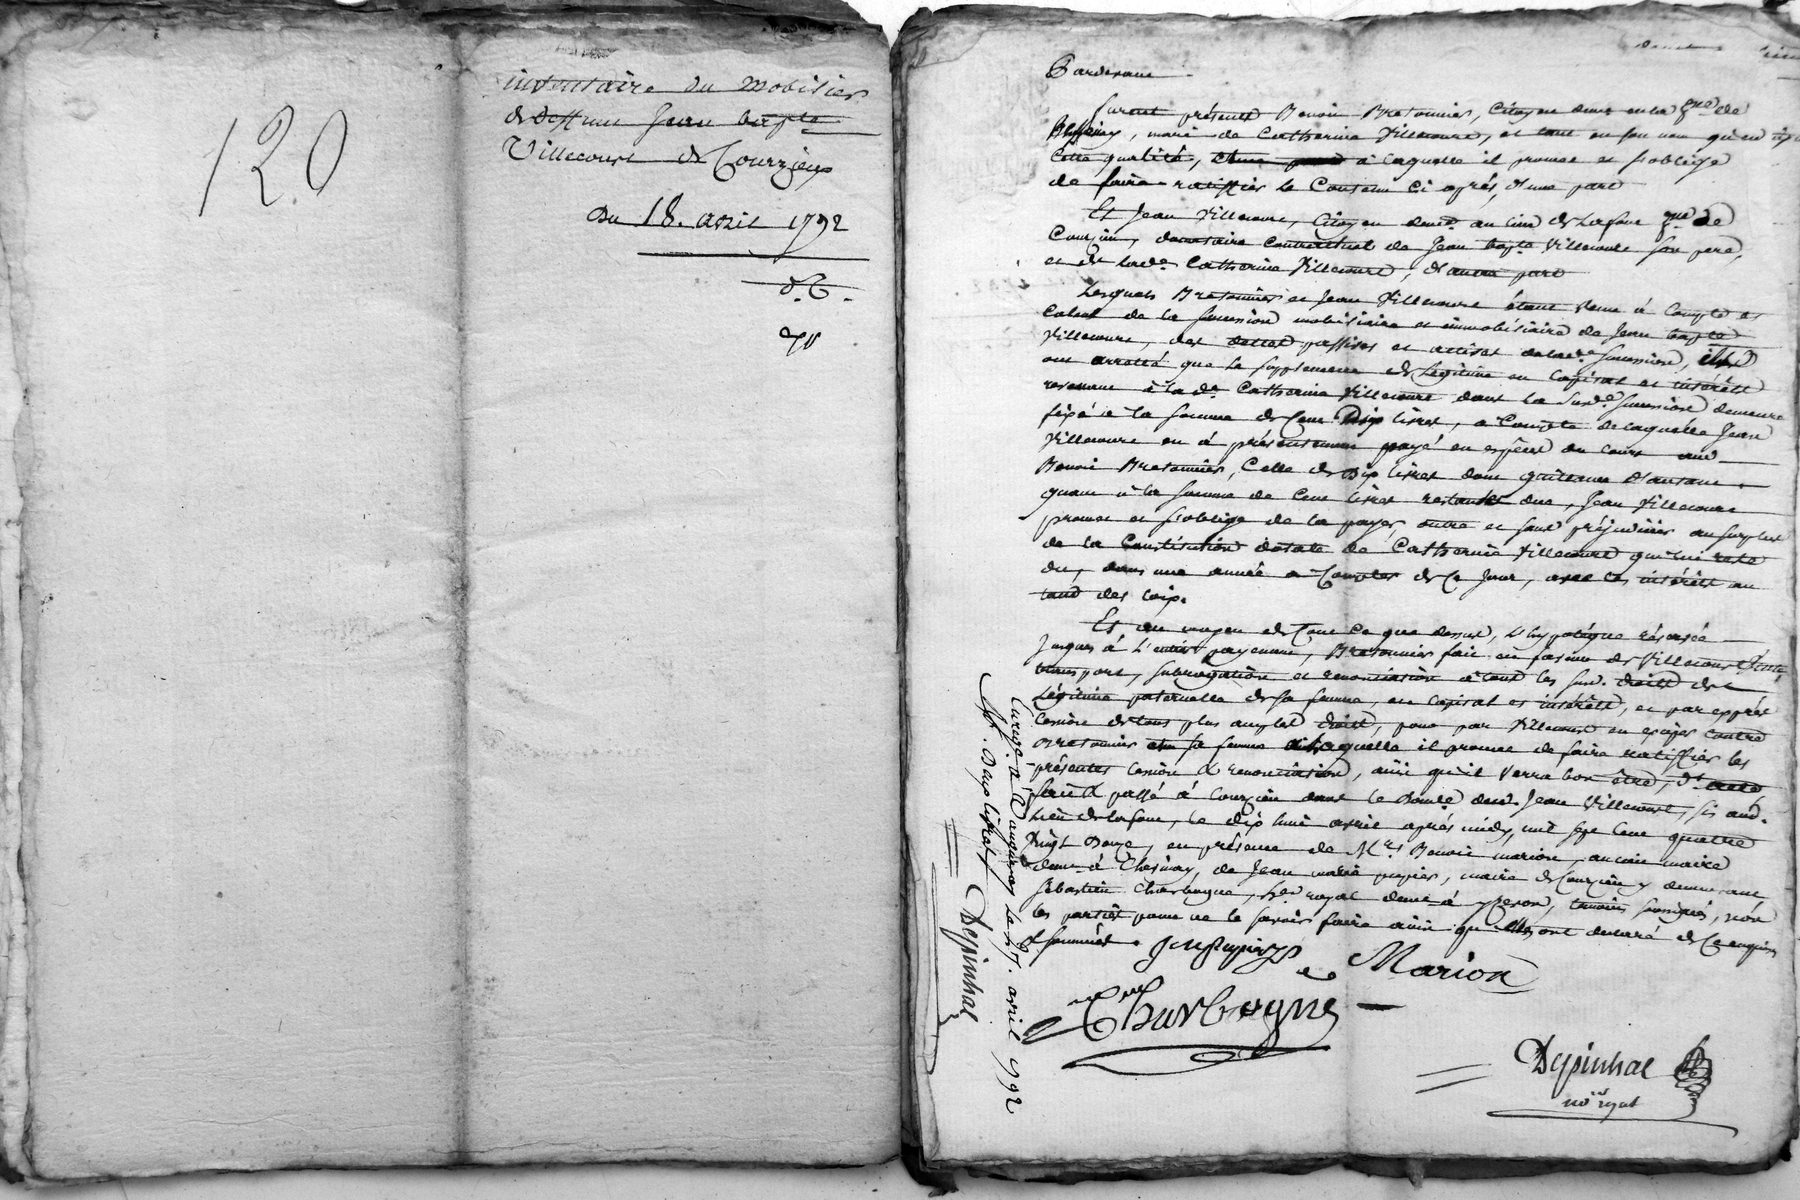 120
inventaire du mobilier
de deffunt Jean bapte
Villecourt de Courzieu
Du 18. avril 1792
Pardevant
furent présents Benoit Bretonnier, Citoyen demt en la psse de
mari de Catherine Villecourt, et tant en son nom qu'en
cette qualité, à laquelle il promet et s'oblige
de faire ratiffier le Contenu ci après, d'une part
Et Jean Villecourt, Citoyen demt au lieu de Lafont psse de
Courzieu, donataire contractuel de Jean bapte Villecourt son pere,
et de lade Catherine Villecourt, d'autre part
Lesquels Bretonnier et Jean Villecourt étant venu à Compte et
Calcul de la succession mobiliaire et immobiliaire de Jean bapte
Villecourt, des dettes passives et actives de lade succession, ils
ont arretté que le supplement de Légitime en capital et intérêts
revenant à lade Catherine Villecourt dans la susde succession demeure
fixé à la somme de Cent Dix livres, a Compte de laquelle Jean
Villecourt en à présentement payé en espèces du cours aud
Benoit Bretonnier, Celle de Dix livres dont quittance d'autant.
quant à la somme de Cent livres restante due, Jean Villecourt
promet et s'oblige de la payer, outre et sans préjudicier au surplus
de la Constitution dotale de Catherine Villecourt qui lui reste
du, dans une année a Compter de Ce Jour, avec les intérêts au
taux des loix.
Et au moyen de tout Ce que dessus, L'hypotéque réservée
Jusques à L'entier payement, Bretonnier fait en faveur de Villecourt
transport, subrogation et renonciation à tous les susd. droits de
Légitime paternelle de sa femme, en capital et intérêts, et par exprès
Cession de tous plus amples droits, pour par Villecourt en exiger contre
Bretonnier et sa femme à laquelle il promet de faire ratiffier les
présentes Cession & renonciation, ainsi qu'il verra bon être, Dt acte
fait & passé à Courzieu dans le Domle dud. Jean Villecourt, sis aud.
Lieu de Lafont, le dix huit avril après midy, mil sept Cent quatre
Vingt Douze, en présence de Mres Benoit marion, ancien maire
demt à Chesinay, de Jean marie maire de Courzieu y demeurant
Sébastien Charbogne, her royal demt à yzeron, temoins soussignés, non
les parties pour ne le savoir faire ainsi qu'elles ont declaré de Ce enquises
& sommées.
Marion
Charbogne
Depinhac
nore royal
Enregé. à Vaugneray le 27. avril 1792
Depinhac